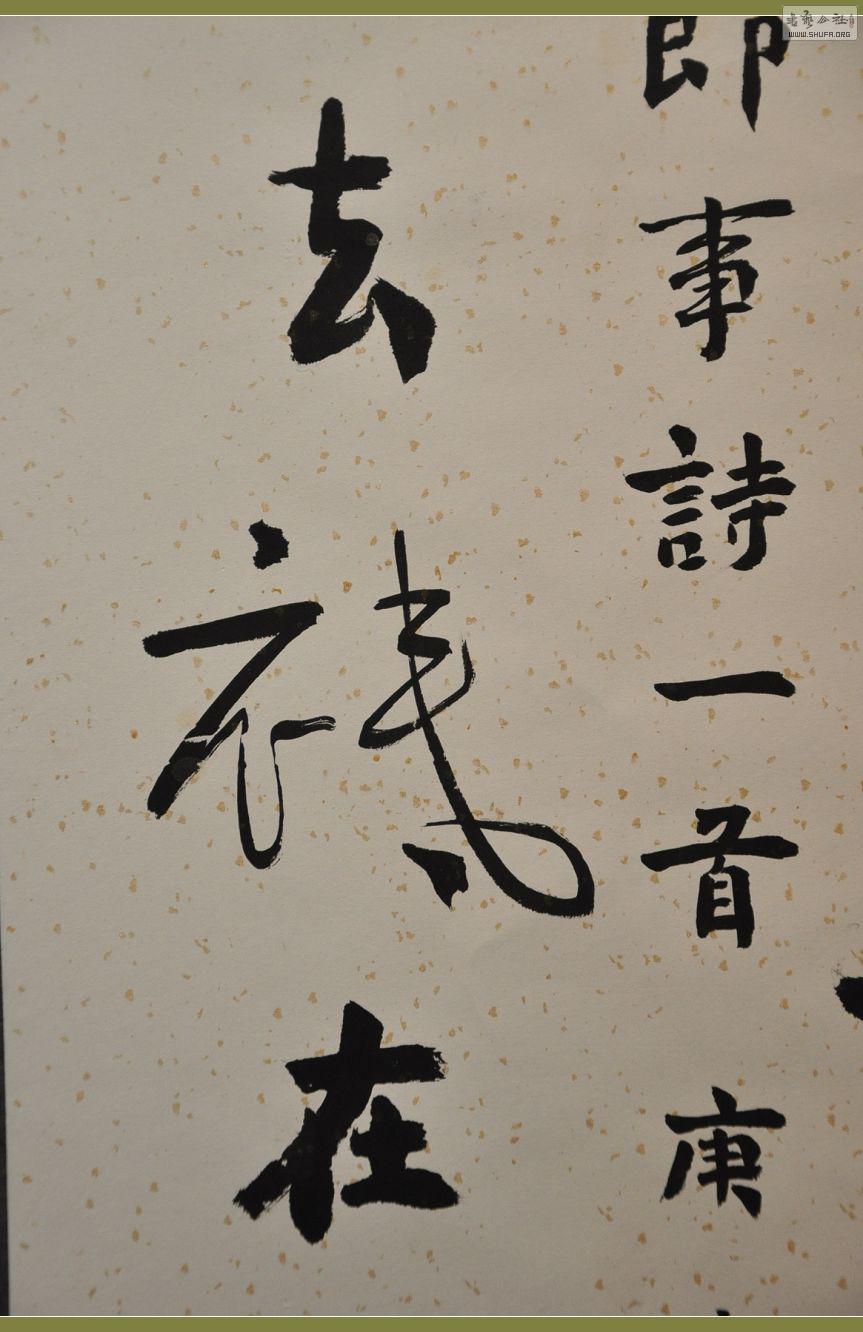 书艺公社
WWW.SHUFA.ORG
即事詩一首庚
去在